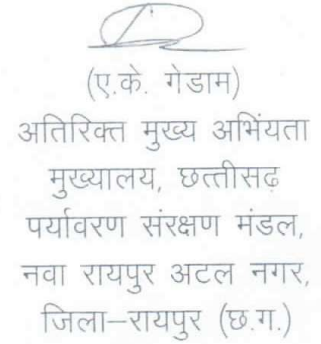 (ए.के. गेडाम)
अतिरिक्त मुख्य अभिंयता
मुख्यालय, छत्तीसगढ़
पर्यावरण संरक्षण मंडल,
नवा रायपुर अटल नगर,
जिला–रायपुर (छ.ग.)